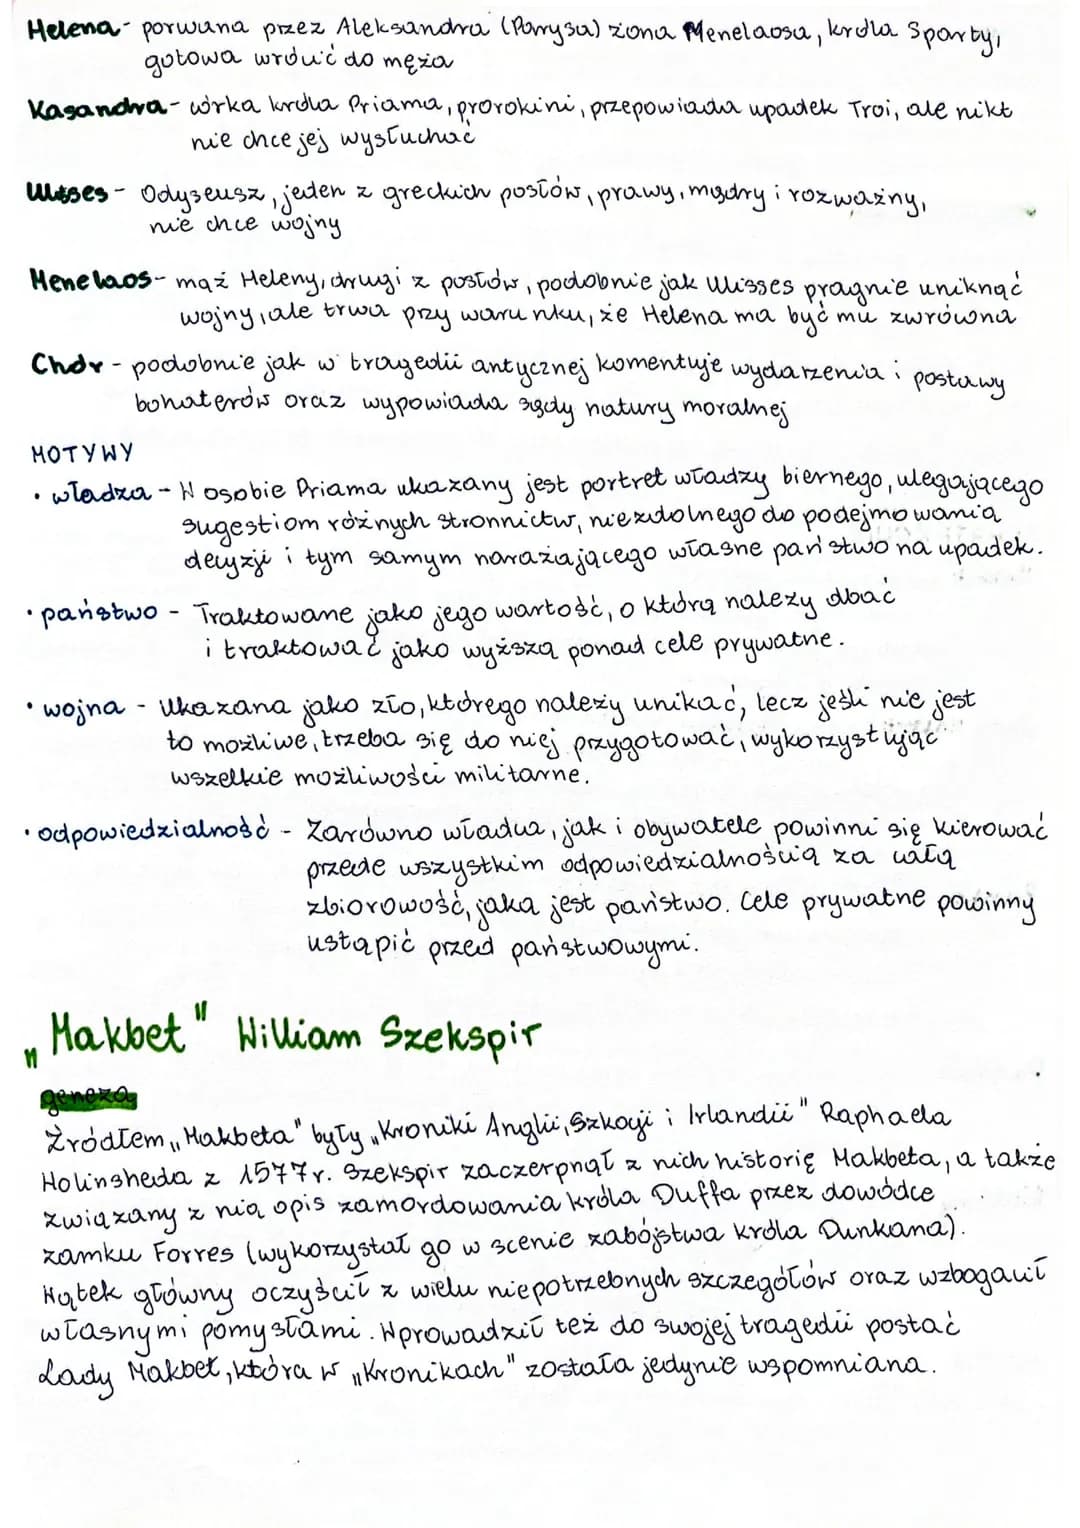 Helena - porwana przez Aleksandra (Parysa) żona Menelaosa, króla Sparty,
gotowa wrócić do męża
Kasandra - córka króla Priama, prorokini, przepowiada upadek Troi, ale nikt
nie chce jej wysłuchać
Ulisses - Odyseusz, jeden z greckich posłów, prawy, mądry i rozważny,
nie chce wojny
Menelaos - mąż Heleny, drugi z posłów, podobnie jak Ulisses pragnie uniknąć
wojny, ale trwa przy warunku, że Helena ma być mu zwrócona
Chór - podobnie jak w tragedii antycznej komentuje wydarzenia i postawy
bohaterów oraz wypowiada sądy natury moralnej
MOTYWY
• władza - W osobie Priama ukazany jest portret władzy biernego, ulegającego
sugestiom różnych stronnictw, niezdolnego do podejmowania
decyzji i tym samym narażającego własne państwo na upadek.
• państwo - Traktowane jako jego wartość, o którą należy dbać
i traktować jako wyższą ponad cele prywatne.
• wojna - Ukazana jako zło, którego należy unikać, lecz jeśli nie jest
to możliwe, trzeba się do niej przygotować, wykorzystując
wszelkie możliwości militarne.
• odpowiedzialność - Zarówno władca, jak i obywatele powinni się kierować
przede wszystkim odpowiedzialnością za całą
zbiorowość, jaką jest państwo. Cele prywatne powinny
ustąpić przed państwowymi.
„Makbet" William Szekspir
geneza
Źródłem „Makbeta" były „Kroniki Anglii, Szkocji i Irlandii" Raphaela
Holinsheda z 1577r. Szekspir zaczerpnął z nich historię Makbeta, a także
związany z nią opis zamordowania króla Duffa przez dowódcę
zamku Forres (wykorzystał go w scenie zabójstwa króla Dunkana).
Wątek główny oczyścił z wielu niepotrzebnych szczegółów oraz wzbogacił
własnymi pomysłami. Wprowadził też do swojej tragedii postać
Lady Makbet, która w „Kronikach" została jedynie wspomniana.